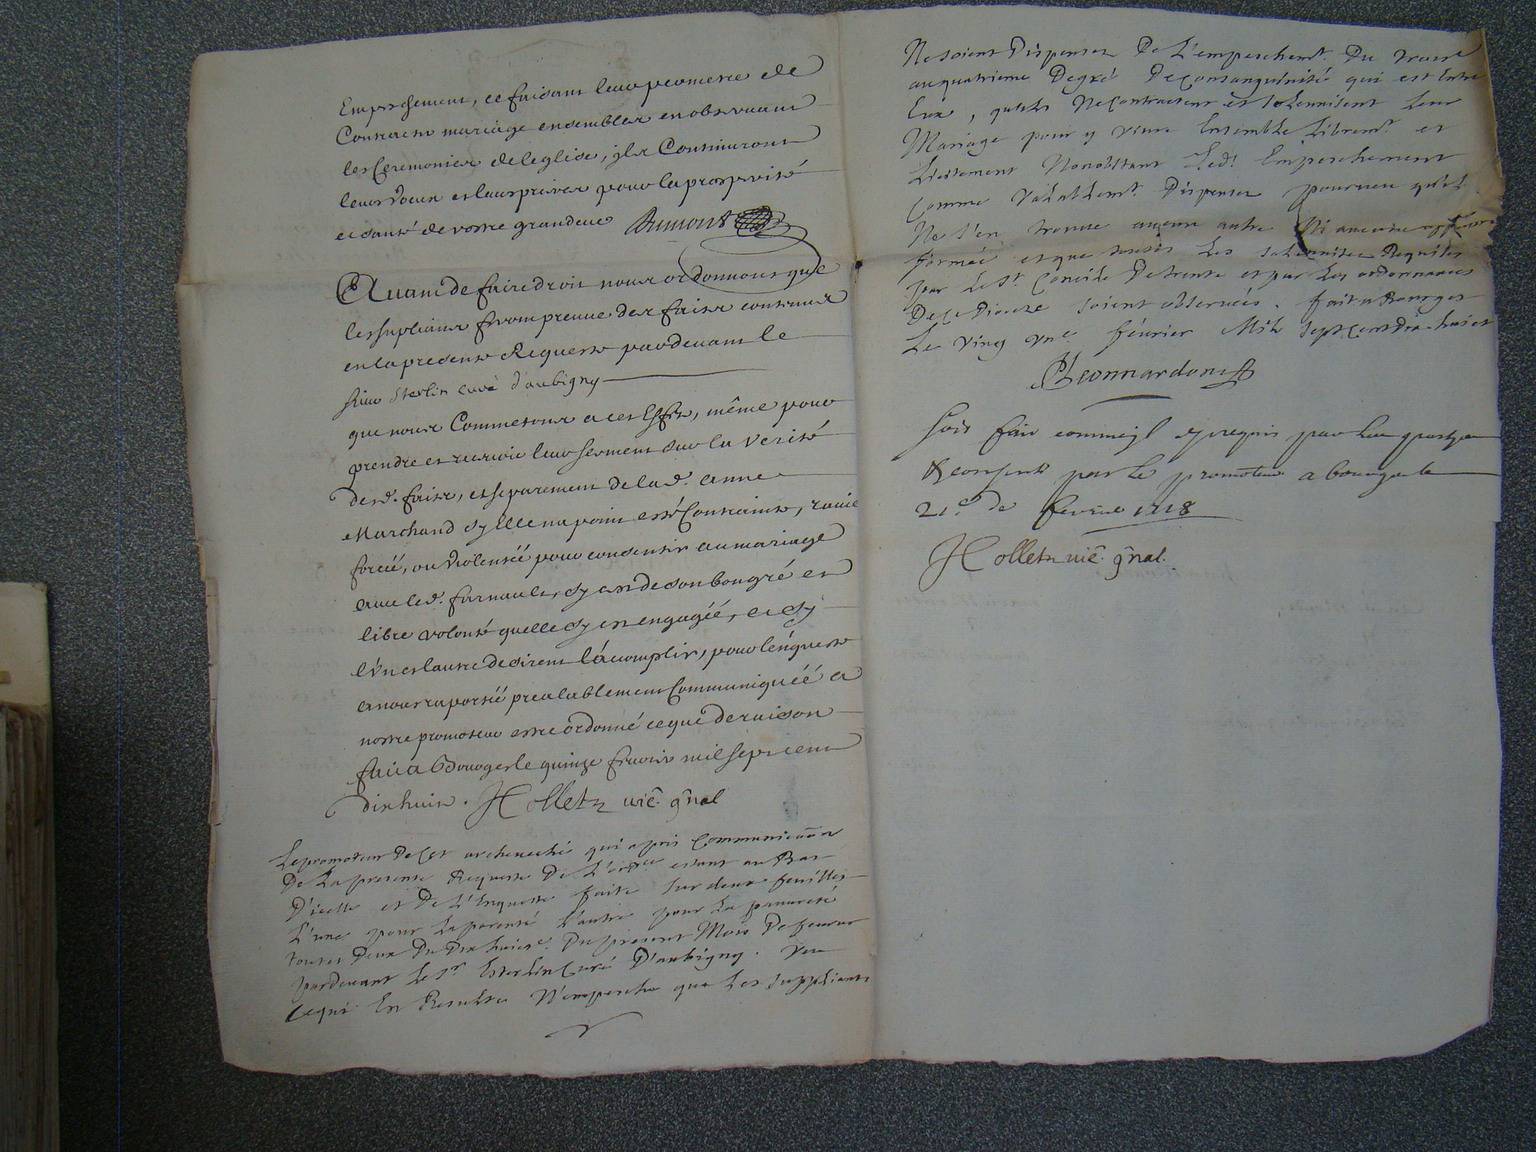 Empeschement, ce faisant leur permettre de
Contracter mariage ensembler en observant
les Ceremonies de leglise, ils Continuront
leurs voeux et leurs prieres pour la prosperité
et santé de vostre grandeur Dumont
Avant de faire droit nous ordonnons que
les supliants feront preuve des faits contenus
en la presente Requeste pardevant le
sieur Sterlin curé d'aubigny
que nous Commetons a cet Effet, même pour
prendre et recevoir leur serment sur la verité
des d. faits, et separement de la d. anne
Marchand sy Elle na point esté Contrainte, ravie
forcée, ou violentée pour consentir au mariage
avec le d. farnault, sy cest de son bon gré et
libre volonté quelle sy est engagée, et sy
l'un et lautre desirent lacomplir, pour lenqueste
a nous raportée prealablement Communiquéé a
nostre promoteur estre ordonné ce que de raison
fait a Bourges le quinze fevrier mil sept cent
dix huit. Hollet vic. gñal
Le promoteur de cet archeveché qui a pris Communicaõn
De La presente Requeste De L'ordce estant au Bas
D'icelle et De L'Enqueste faite sur deux feuilles
L'une pour La parenté L'autre pour La pauvreté
toutes deux Du Dix huitie. Du present Mois De fevrier
pardevant Le Sr. Esterlin Curé D'aubigny. Veu
Cequi En Resulte N'empesche que Les suppliants
Ne soient Dispensez De L'empeschemt. Du trois
au quatrieme Degré De Consanguinité qui est Entre
Eux, qu'ils Ne Contractent et solennisent Leur
Mariage pour y vivre Ensemble Libremt. et
Licitement Nonobstant Ledt. Empeschement
Comme valablemt. Dispensez pourveu qu'il
Ne s'en trouve aucun autre Ni aucune
formée et que toutes Les solennitez Requises
par Le St. Concile De trente et par Les ordonnances
De ce Dioceze soient observées. fait a Bourges
Le ving une fevrier Mil sept Cent Dix huict
Leonnardon
Soit fait comme il est requis par
& consenti par le promoteur a bourges le
21e. de fevrier 1718
Hollet vic. gñal.